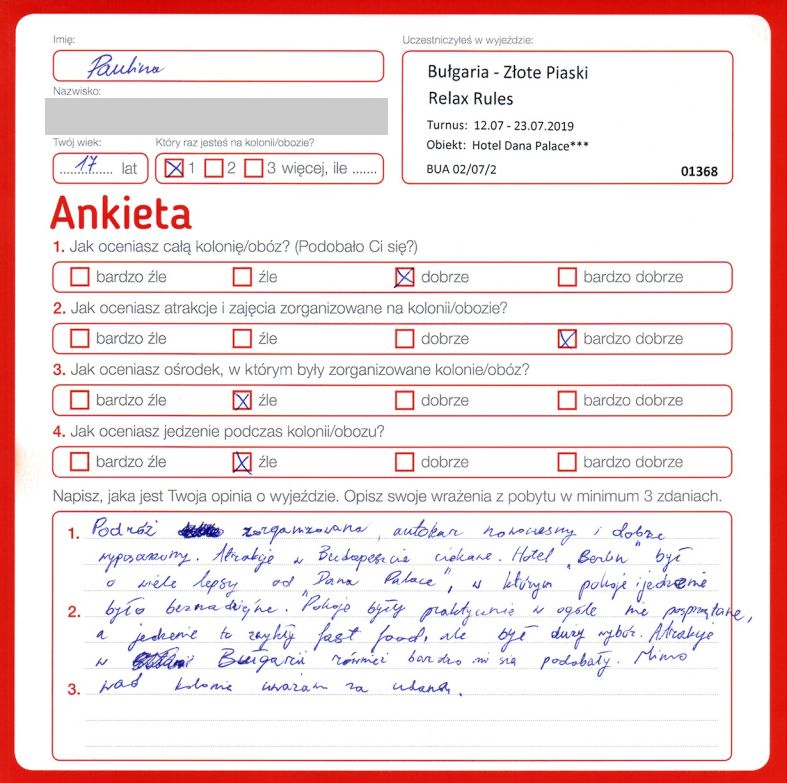 Imię:
Paulina
Nazwisko:
Twój wiek:
17 lat
Który raz jesteś na kolonii/obozie?
1 2 3 więcej, ile .......
Uczestniczyłeś w wyjeździe:
Bułgaria - Złote Piaski
Relax Rules
Turnus: 12.07 - 23.07.2019
Obiekt: Hotel Dana Palace***
BUA 02/07/2 01368
Ankieta
1. Jak oceniasz całą kolonię/obóz? (Podobało Ci się?)
bardzo źle źle dobrze bardzo dobrze
2. Jak oceniasz atrakcje i zajęcia zorganizowane na kolonii/obozie?
bardzo źle źle dobrze bardzo dobrze
3. Jak oceniasz ośrodek, w którym były zorganizowane kolonie/obóz?
bardzo źle źle dobrze bardzo dobrze
4. Jak oceniasz jedzenie podczas kolonii/obozu?
bardzo źle źle dobrze bardzo dobrze
Napisz, jaka jest Twoja opinia o wyjeździe. Opisz swoje wrażenia z pobytu w minimum 3 zdaniach.
1. Podróż zorganizowana, autokar nowoczesny i dobrze
wyposażony. Atrakcje w Budapeszcie ciekawe. Hotel "Berlin" był
o wiele lepszy od "Dana Palace", w którym pokoje i jedzenie
2. było beznadziejne. Pokoje były praktycznie w ogóle nie posprzątane,
a jedzenie to zwykły fast food, ale był duży wybór. Atrakcje
w Bułgarii również bardzo mi się podobały. Mimo
3. wad kolonie uważam za udaną.